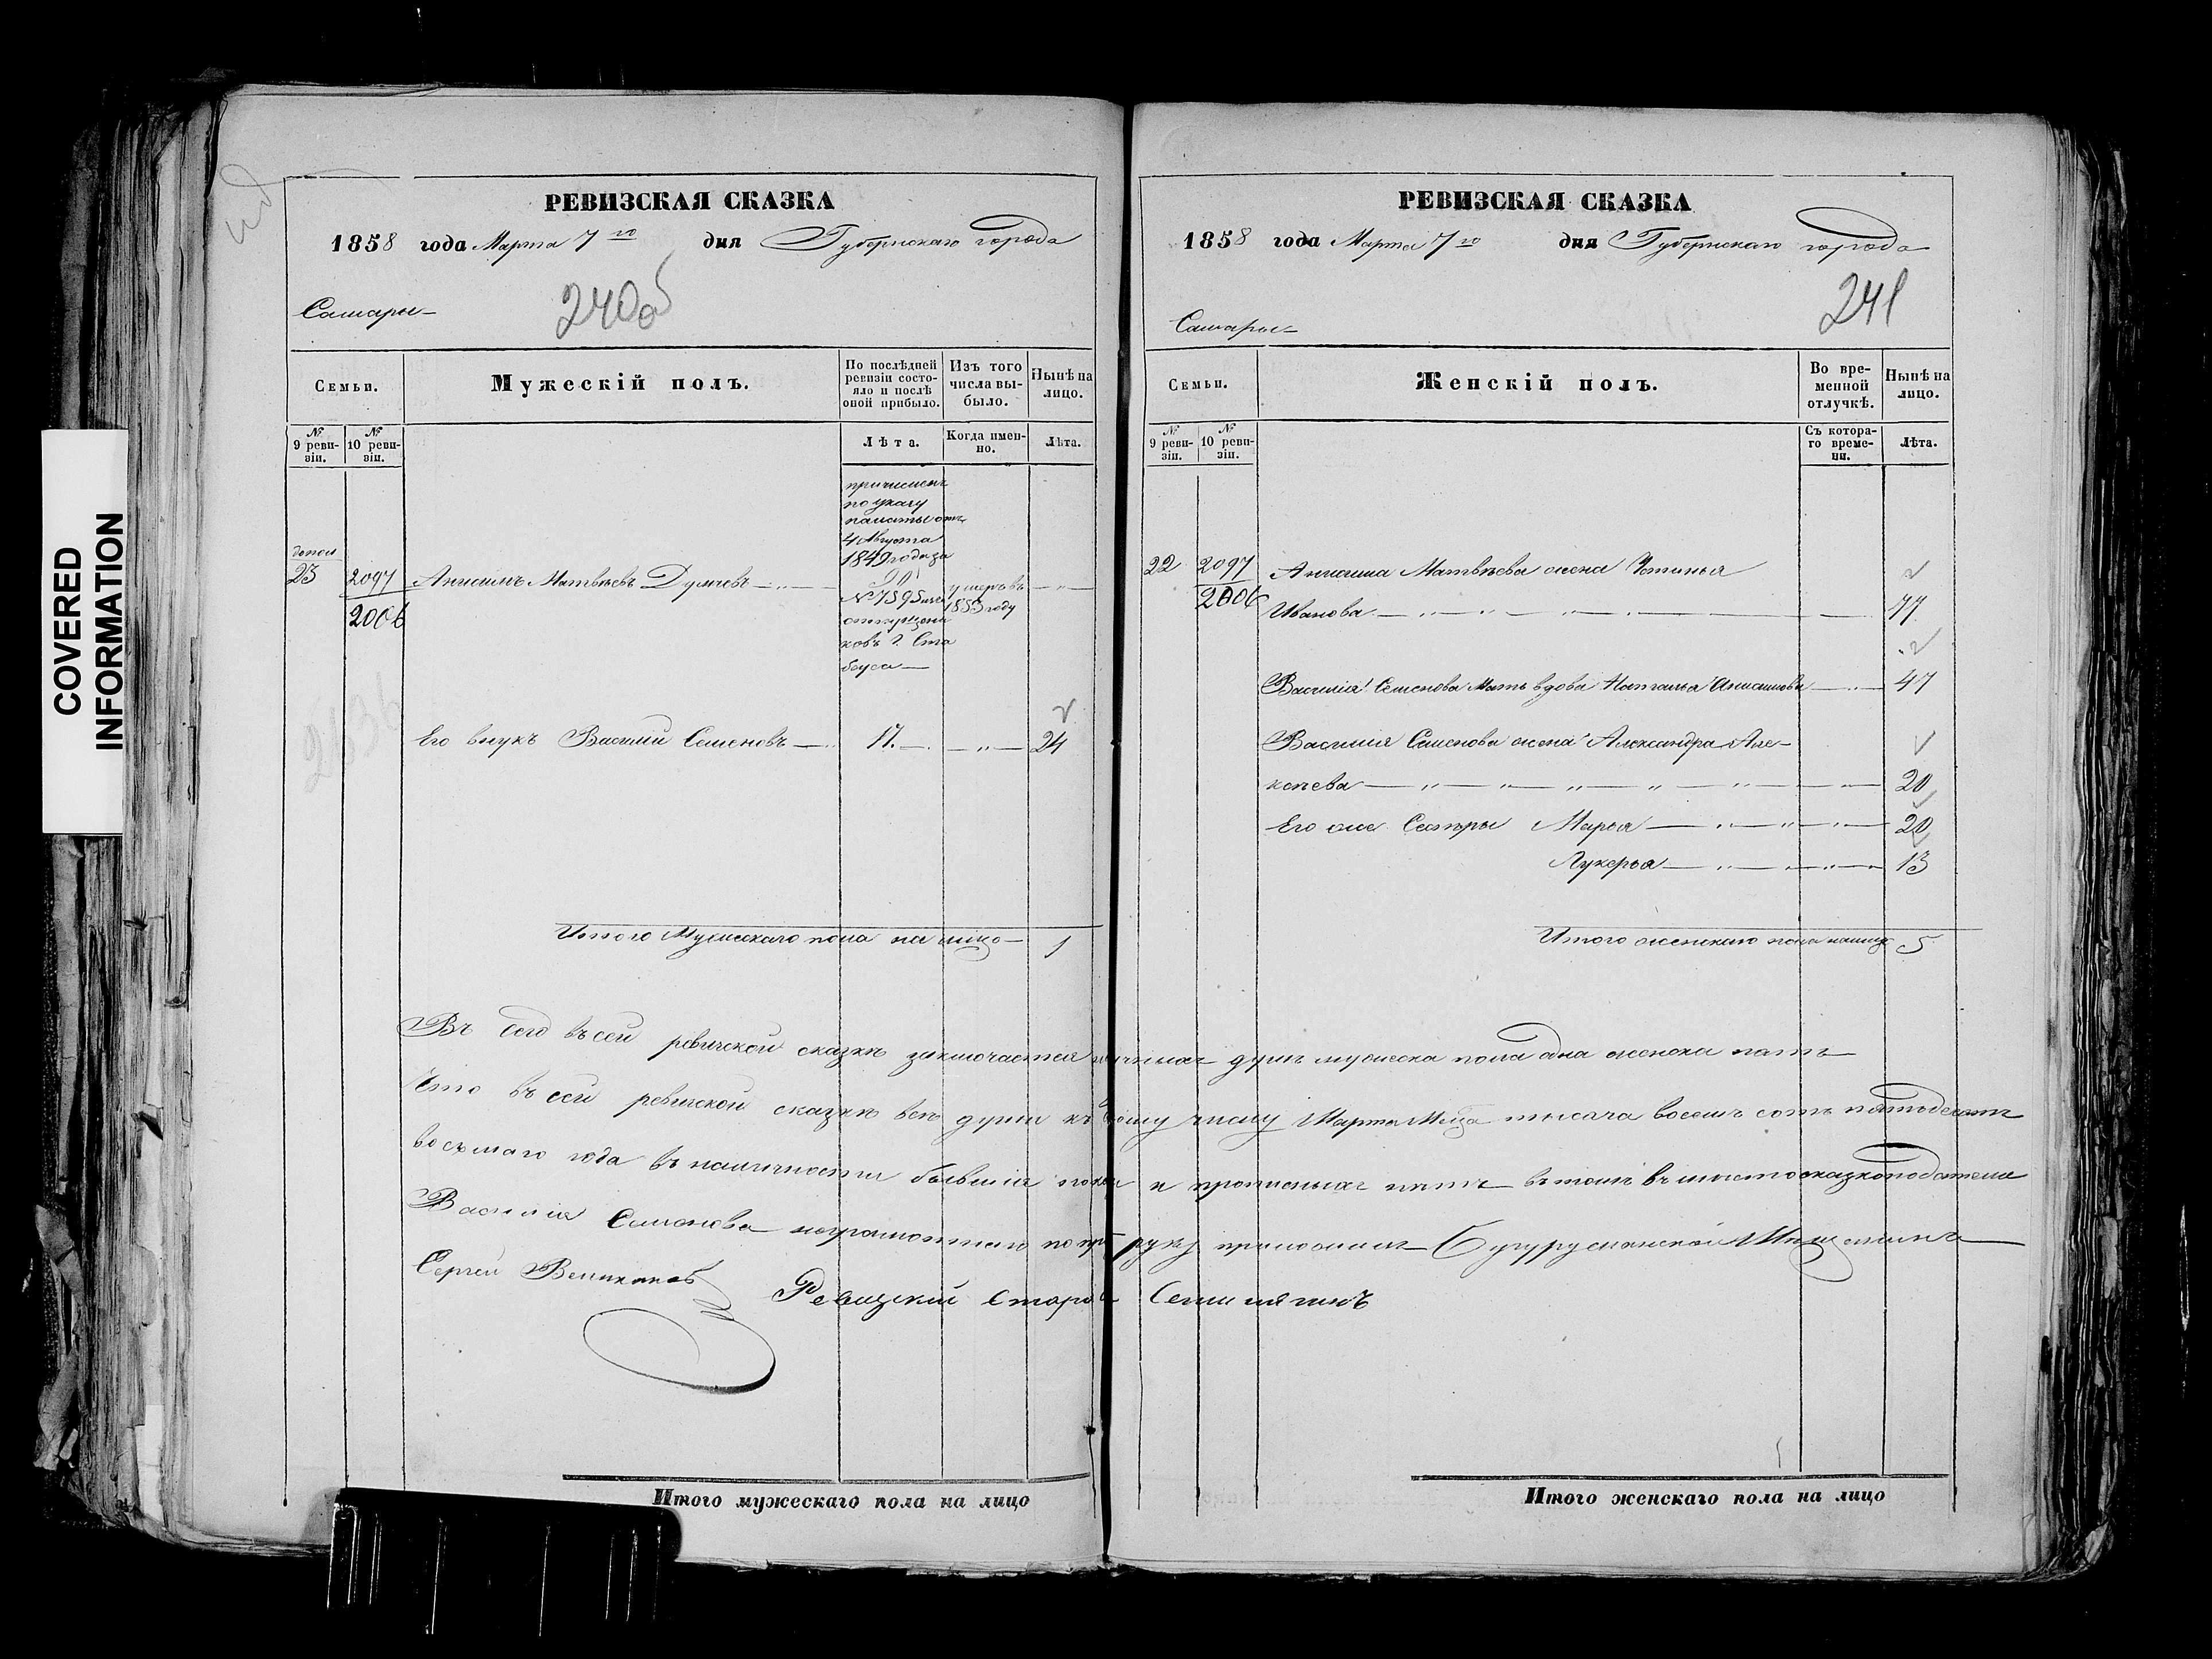 COVERED
INFORMATION
РЕВИЗСКАЯ СКАЗКА
1858 года Марта 7го дня Губернскаго города
Самары
240об
Семьи.
Мужескій полъ.
По послѣдней ревизіи состояло и послѣ оной прибыло.
Изъ того числа выбыло.
Нынѣ на лицо.
№ 9 ревизіи.
№ 10 ревизіи.
Лѣта.
Когда именно.
Лѣта.
причислен
по указу
палаты отъ
4 Августа
1849 года за
№ 7595 изъ
отпущени
ковъ Г. Ста
допол
23 2097 Анисимъ Матвѣевъ умеръ въ 1853 году
2006
Его внукъ Василий Семеновъ 17. 24
Итого Мужескаго пола на лицо 1
РЕВИЗСКАЯ СКАЗКА
1858 года Марта 7го дня Губернскаго города
Самары
241
Семьи.
Женскій полъ.
Во временной отлучкѣ.
Нынѣ на лицо.
№ 9 ревизіи.
№ 10 ревизіи.
Съ котораго времени.
Лѣта.
22 2097 Анисима Матвѣева жена Устинья
2006 Иванова 77
Василія Семенова Мать вдова Наталья Анисимова 47
Василия Семенова жена Александра Але-
ксѣева 20
Его же Сестры Марья 20
Лукерья 13
Итого женскаго пола налицо 5
Въ сего въ сей ревизской сказкѣ заключается наличныхъ душъ мужеска пола одна женска пять
Что въ сей ревизской сказкѣ всѣ души къ числу Марта Мца тысяча восемь сотъ пятьдесятъ
восьмаго года въ наличности бывшія и прописныхъ нѣтъ въ томъ вмѣсто сказкоподателя
Василія Семенова неграмотнаго по руку приложилъ Бугурусланской Мѣщанинъ
Сергей
Ревизский Старо
Итого мужескаго пола на лицо
Итого женскаго пола на лицо